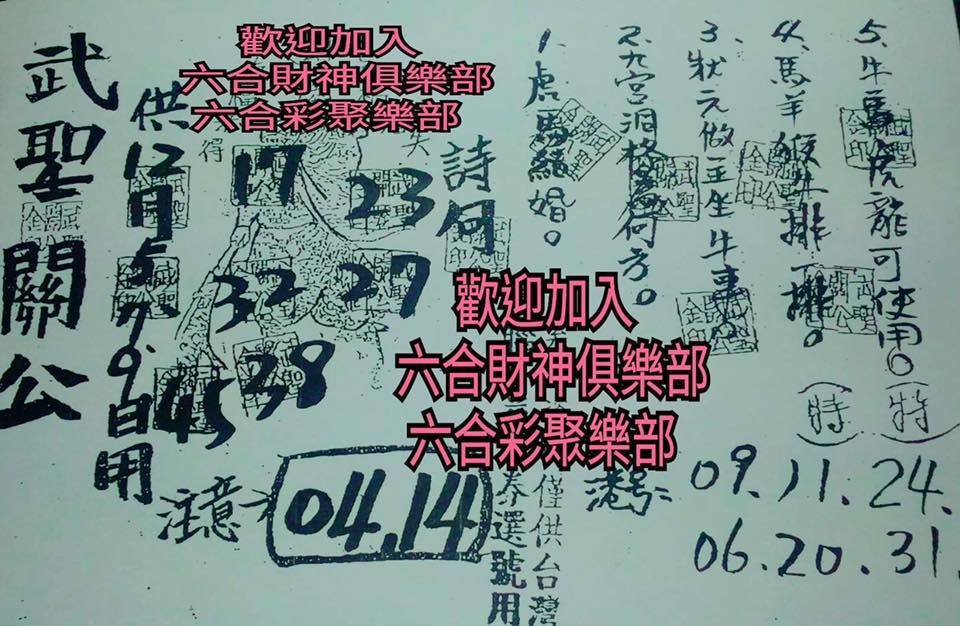 歡迎加入
六合財神俱樂部
六合彩聚樂部
5.牛馬虎龍可使用。(特)
4.馬羊猴牛排一排。(特)
3.狀元做王坐牛車。
2.九宮洞格是何方。
1.虎馬結婚。
詩何
武聖關公
供12月5.7.9.日用
17
23
32
27
45
38
得
歡迎加入
六合財神俱樂部
六合彩聚樂部
注意
04.14
僅供台灣
券選號用
港号:
09.11.24.
06.20.31.